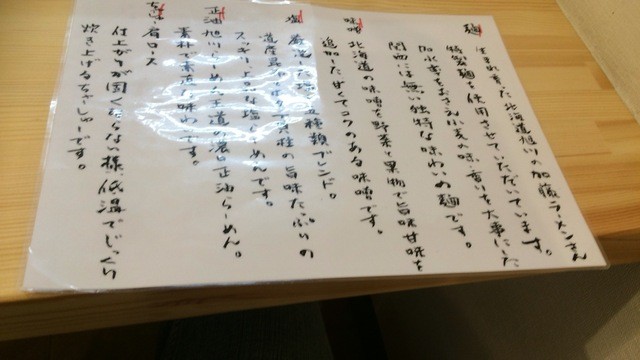 麺 生まれ育った北海道旭川の加藤ラーメンさん
特製麺を使用させていただいています。
加水率をおさえ小麦の味・香りを大事にした
関西には無い独特な味わいの麺です。
味噌 北海道の味噌を野菜と果物で旨味甘味を
追加した甘くてコクのある味噌です。
塩 厳選した塩 種類ブレンド。
道産昆布 貝柱の旨味たっぷりの
スッキリ 塩らーめんです。
正油 旭川らーめん王道の濃口正油らーめん。
素朴で素直な味わいです。
ちゃーしゅー 肩ロース
仕上がりが固くならない様、低温でじっくり
炊き上げるちゃーしゅーです。